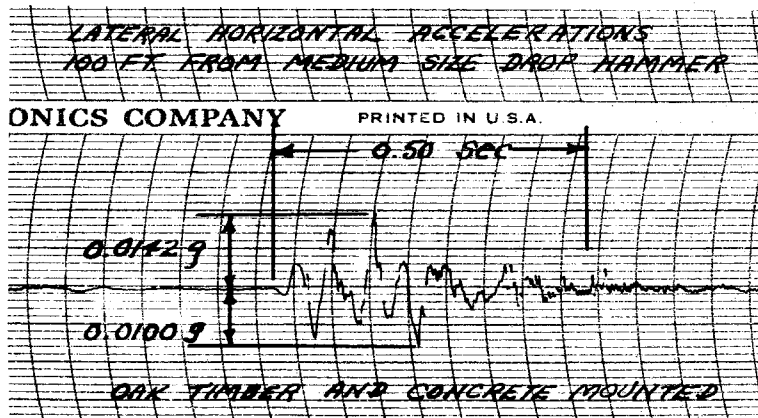 LATERAL HORIZONTAL ACCELERATIONS
100 FT. FROM MEDIUM SIZE DROP HAMMER
ONICS COMPANY PRINTED IN U.S.A.
0.50 SEC
0.0142 g
0.0100 g
OAK TIMBER AND CONCRETE MOUNTED